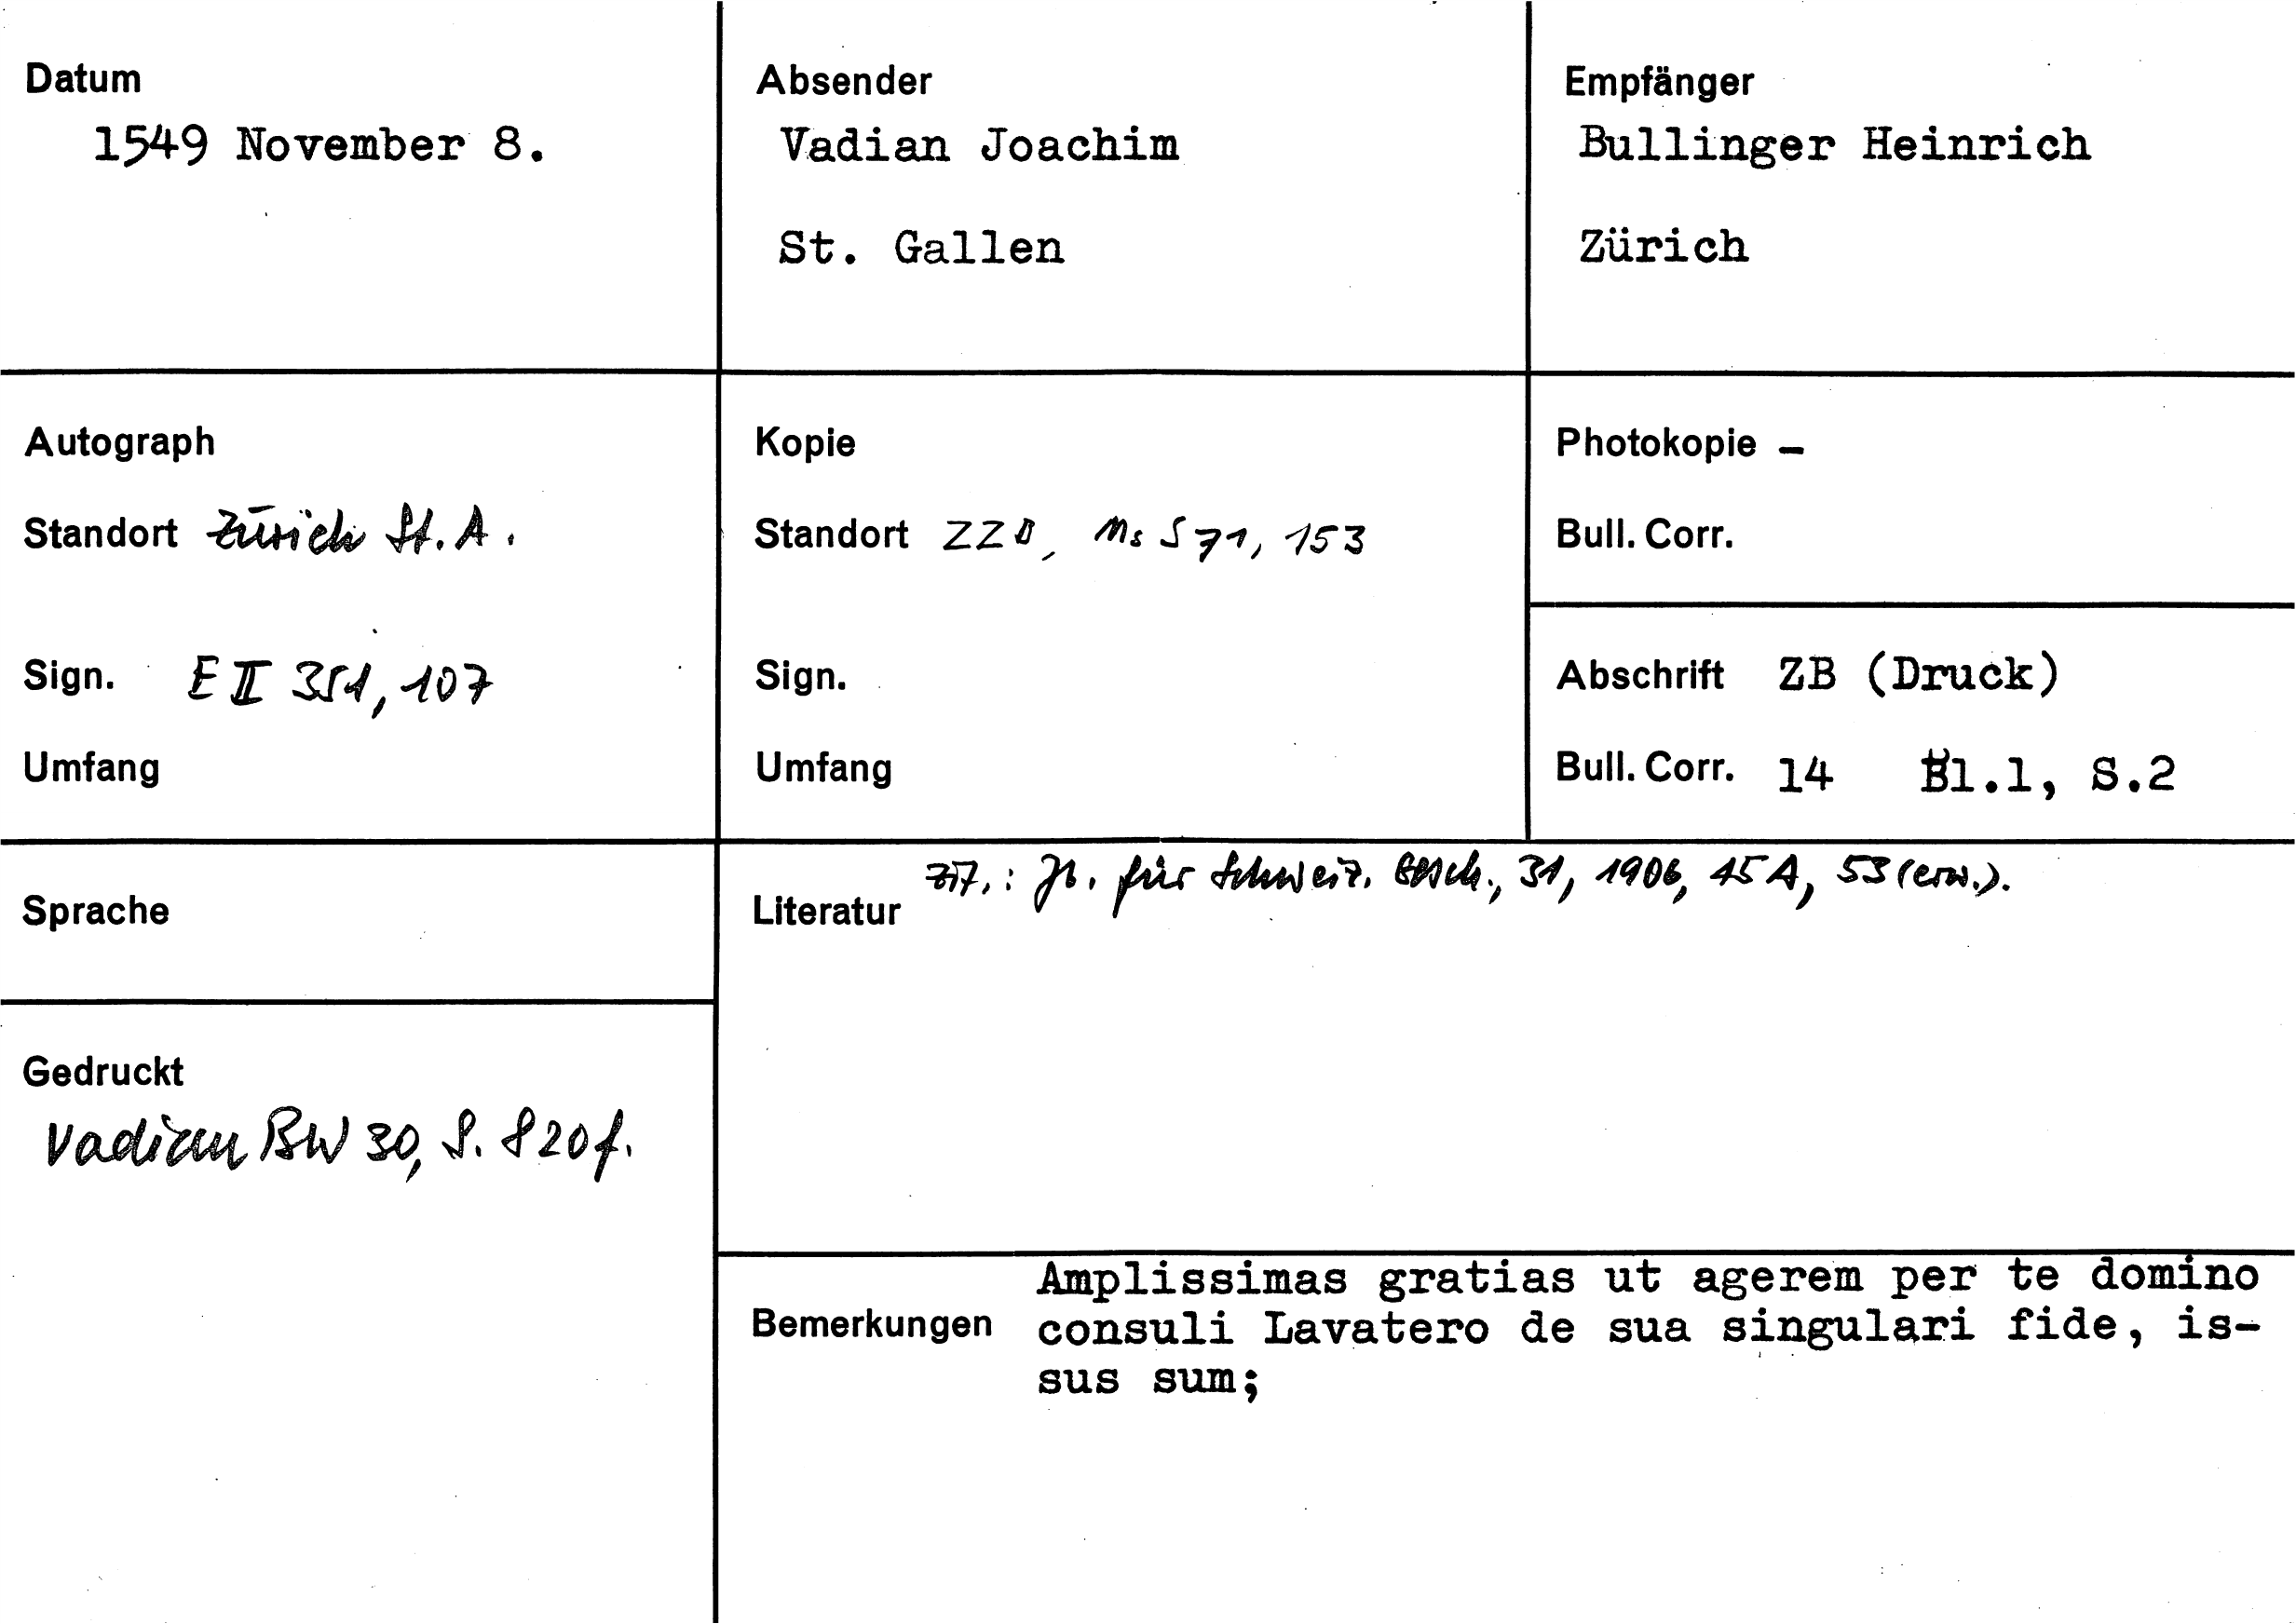 Datum
1549 November 8.
Absender
Vadian Joachim
St. Gallen
Empfänger
Bullinger Heinrich
Zürich
Autograph
Standort Zürich St. A.
Sign. E II 351, 107
Umfang
Kopie
Standort ZZB, Ms S 71, 153
Sign.
Umfang
Photokopie –
Bull. Corr.
Abschrift ZB (Druck)
Bull. Corr. 14 Bl.1, S.2
Sprache
Gedruckt
Vadian BW 30, S. 820f.
Literatur zit.: Jb. für Schweiz. Gesch., 31, 1906, 45 A, 53 (erw.).
Bemerkungen
Amplissimas gratias ut agerem per te domino
consuli Lavatero de sua singulari fide, is-
sus sum;